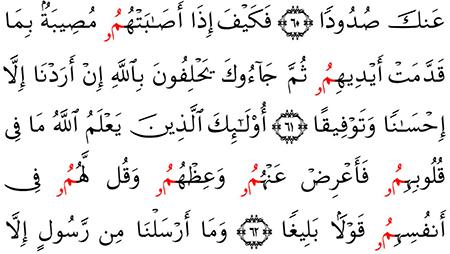 عَنكَ صُدُودًا ۝٦٠ فَكَيْفَ إِذَا أَصَـٰبَتْهُمُۥ مُصِيبَةٌۢ بِمَا
قَدَّمَتْ أَيْدِيهِمُۥ ثُمَّ جَآءُوكَ يَحْلِفُونَ بِٱللَّهِ إِنْ أَرَدْنَا إِلَّا
إِحْسَـٰنًا وَتَوْفِيقًا ۝٦١ أُو۟لَـٰٓئِكَ ٱلَّذِينَ يَعْلَمُ ٱللَّهُ مَا فِى
قُلُوبِهِمُۥ فَأَعْرِضْ عَنْهُمُۥ وَعِظْهُمُۥ وَقُل لَّهُمُۥ فِى
أَنفُسِهِمُۥ قَوْلًۢا بَلِيغًا ۝٦٢ وَمَا أَرْسَلْنَا مِن رَّسُولٍ إِلَّا